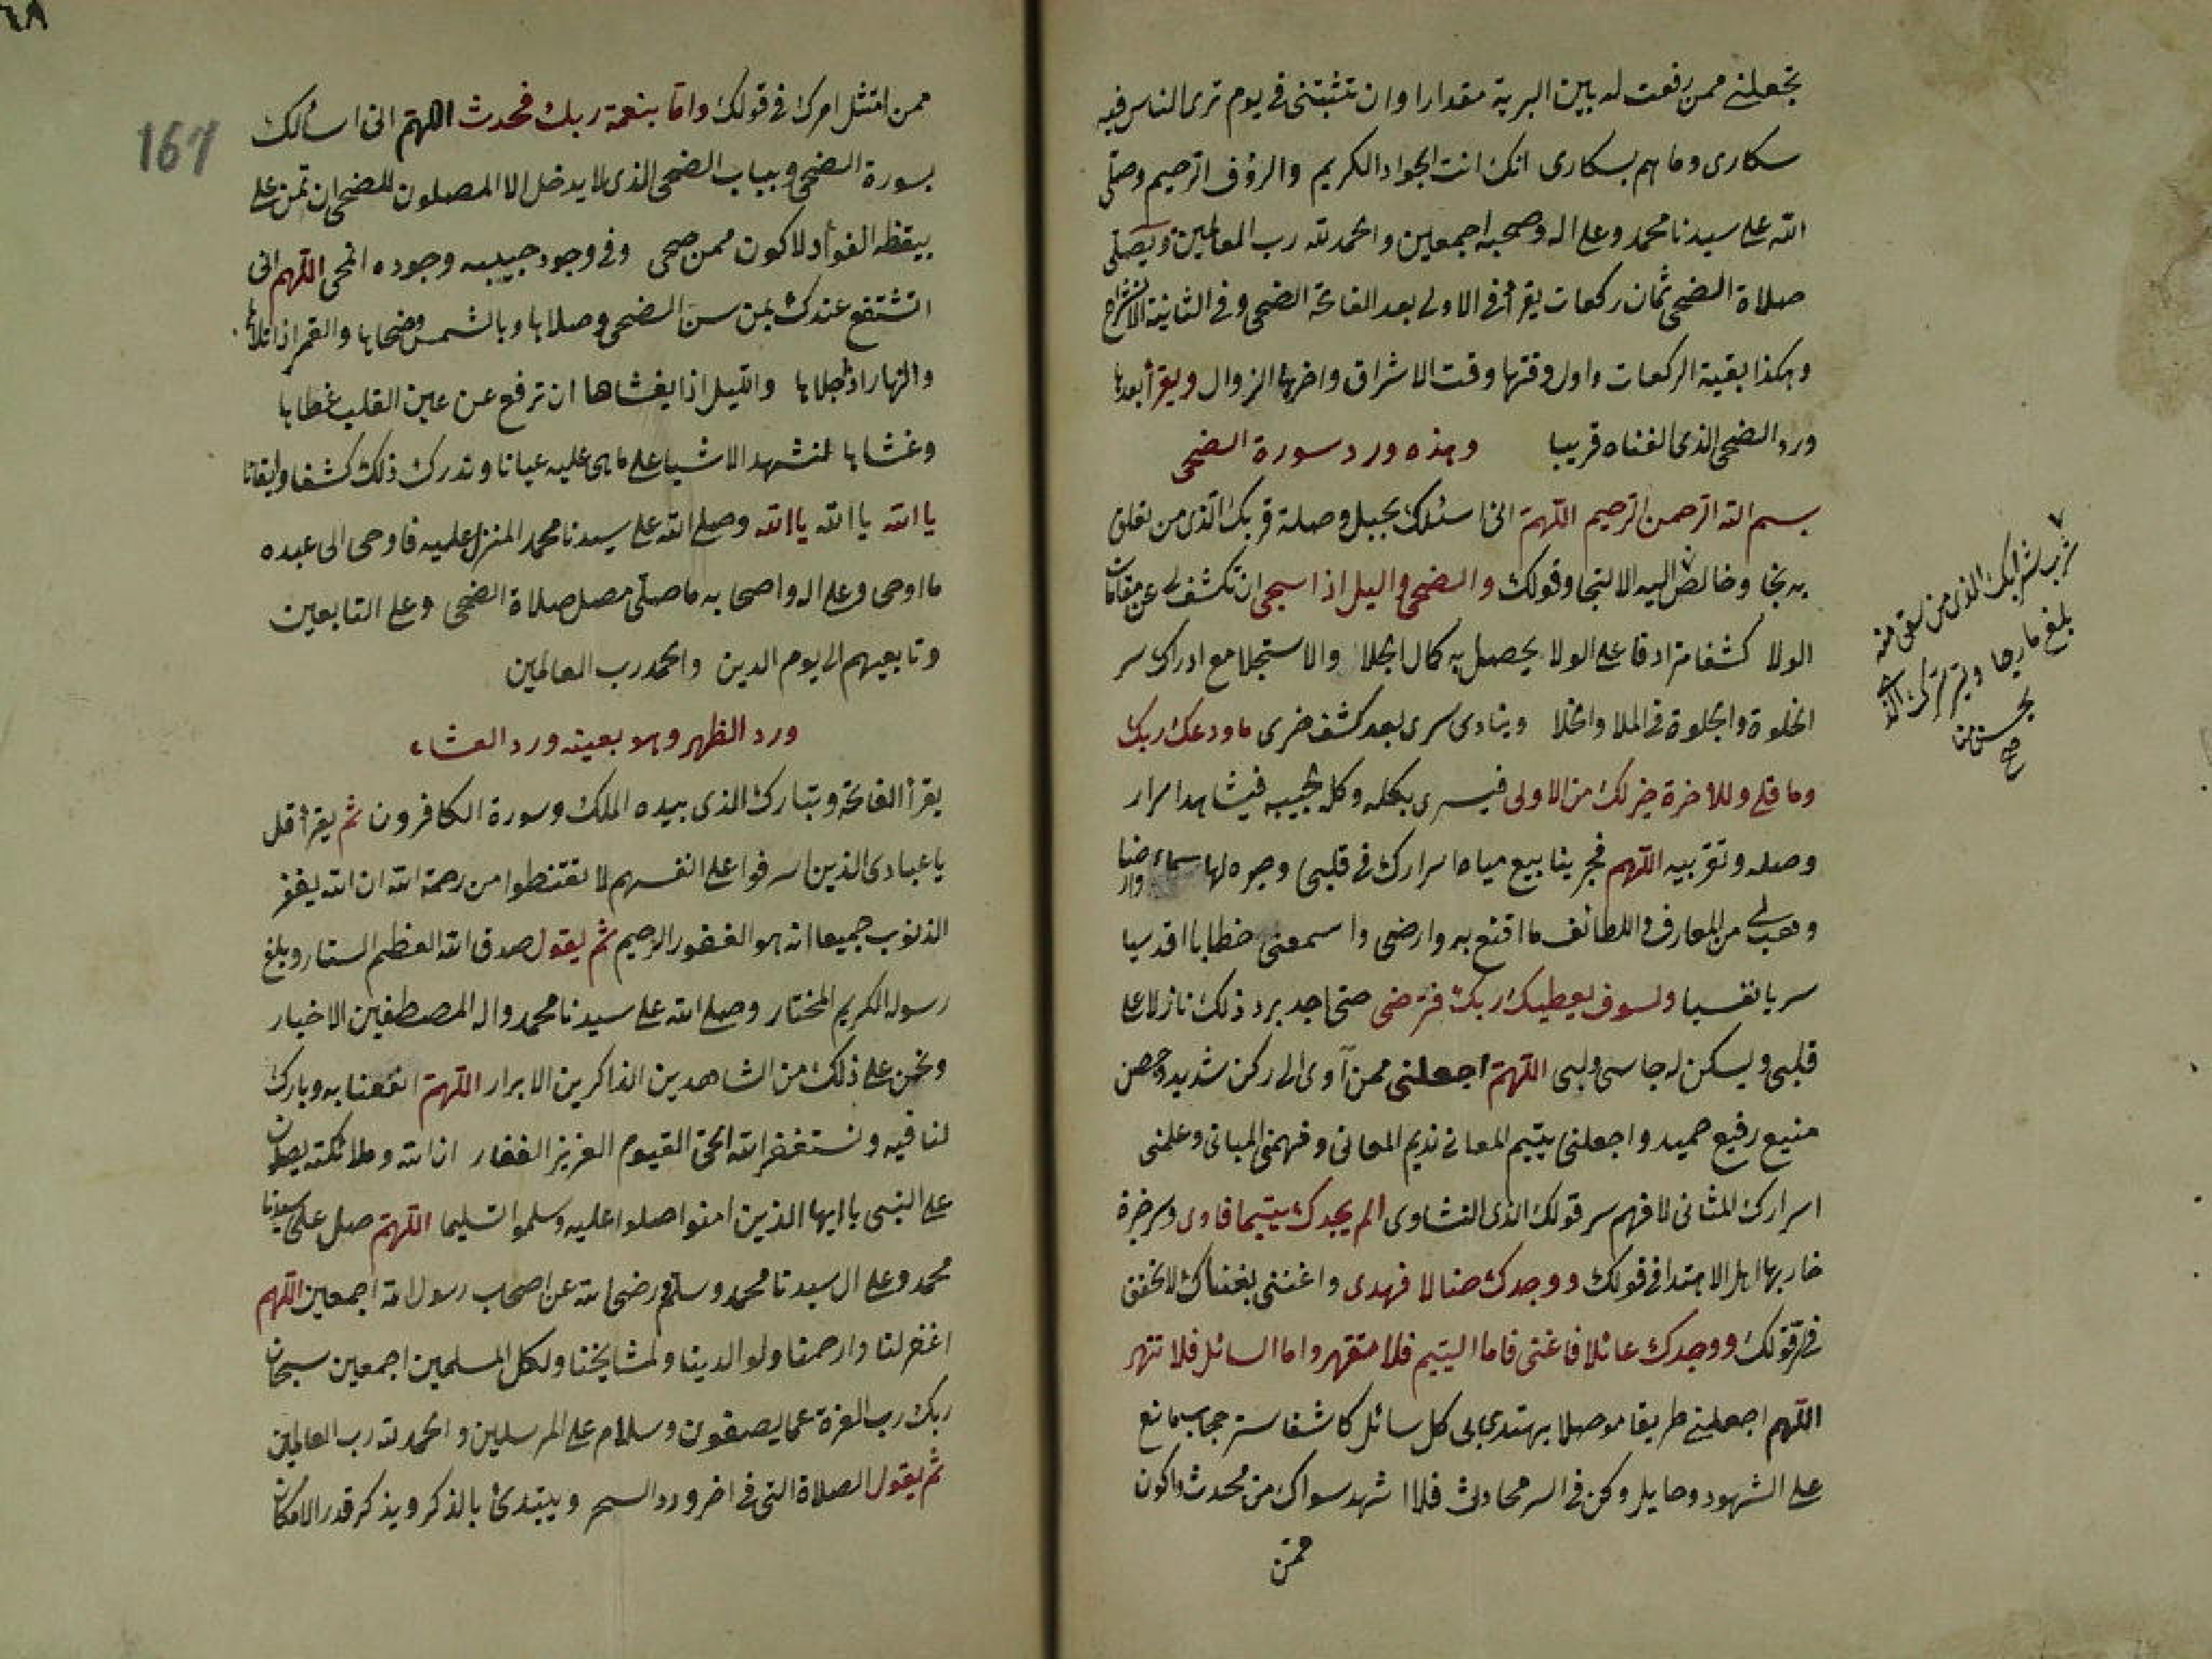 تجعلنى ممن رفعت له بين البرية مقدارا وان تثبتنى فى يوم ترى الناس فيه
سكارى وما هم بسكارى انك انت الجواد الكريم والرؤف الرحيم وصلى
الله على سيدنا محمد وعلى اله وصحبه اجمعين والحمد لله رب العالمين ويصلى
صلاة الضحى ثمان ركعات يقرأ فى الاولى بعد الفاتحة الضحى وفى الثانية الانشراح
وهكذا بقية الركعات واول وقتها وقت الاشراق واخرها الزوال ويقرأ بعدها
ورد الضحى الذى الفناه قريبا وهذه ورد سورة الضحى
بسم الله الرحمن الرحيم اللهم انى اسئلك بحبل وصلة قربك الذى من تعلق
به نجا وخالص اليه الالتجا وقولك والضحى والليل اذا سجى ان تكشف لى عن مقامات
الولا كشفا مترادفا على الولا يحصل به كمال الجلا والاستجلا مع ادراك سر
الخلوة والجلوة فى الملا والخلا وينادى سرى بعد كشف ضرى ما ودعك ربك
وما قلى وللاخرة خير لك من الاولى فيسرى بكله وكل لحبيبه فيشاهد اسرار
وصله وتقريبه اللهم فجر ينابيع مياه اسرارك فى قلبى وجوه لها سماء وارضا
وهب لى من المعارف واللطائف ما اقنع به وارضى واسمعنى خطابا اقدسيا
سريا نفسيا ولسوف يعطيك ربك فترضى حتى اجد برد ذلك نازلا على
قلبى ويسكن له جاسى ولبى اللهم اجعلنى ممن آوى الى ركن شديد وحصن
منيع رفيع حميد واجعلنى يتيم المعانى نديم المعانى وفهمنى المبانى وعلمنى
اسرارك المثانى لافهم سر قولك الذى النشاوى الم يجدك يتيما فاوى وسر خمرة
خاربها اهل الاهتدا فى قولك ووجدك ضالا فهدى واغننى بغنأك لاتحقق
فى سر قولك ووجدك عائلا فاغنى فاما اليتيم فلا تقهر واما السائل فلا تنهر
اللهم اجعلنى طريقا موصلا يهتدى بى كل سائل كاشفا ستر حجاب مانع
على الشهود وحايل وكن فى السر محادثى فلا اشهد سواك من محدث واكون
ممن
شرب شرابك الذى من سقى منه
بلغ ما رجا
بحسن من
صح
ممن امتثل امرك فى قولك واما بنعمة ربك فحدث اللهم انى اسألك
بسورة الضحى وبباب الضحى الذى لا يدخل الا المصلون للضحى ان تمن على
بيقظه الفوأد لاكون ممن صحى وفى وجود حبيبه وجوده انمحى اللهم انى
اتشفع عندك بمن سن الضحى وصلاها وبالشمس وضحاها والقمر اذا تلاها
والنهار اذا جلاها والليل اذا يغشاها ان ترفع عن عين القلب غطاها
وغشاها لنشهد الاشيا على ماهى عليه عيانا وندرك ذلك كشفا وايقانا
يا الله يا الله يا الله وصلى الله على سيدنا محمد المنزل عليه فاوحى الى عبده
ما اوحى وعلى اله واصحابه ما صلى مصل صلاة الضحى وعلى التابعين
وتابعيهم الى يوم الدين والحمد رب العالمين
ورد الظهر وهو بعينه ورد العشاء
يقرأ الفاتحة وتبارك الذى بيده الملك وسورة الكافرون ثم يقرأ قل
يا عبادى الذين اسرفوا على انفسهم لا تقنطوا من رحمة الله ان الله يغفر
الذنوب جميعا انه هو الغفور الرحيم ثم يقول صدق الله العظيم الستار وبلغ
رسوله الكريم المختار وصلى الله على سيدنا محمد واله المصطفين الاخيار
ونحن على ذلك من الشاهدين الذاكرين الابرار اللهم انفعنا به وبارك
لنا فيه ونستغفر الله الحى القيوم العزيز الغفار ان الله وملائكته يصلون
على النبى يا ايها الذين امنوا صلوا عليه وسلموا تسليما اللهم صل على سيدنا
محمد وعلى ال سيدنا محمد وسلم ورضى الله عن اصحاب رسول الله اجمعين اللهم
اغفر لنا وارحمنا ولوالدينا ولمشايخنا ولكل المسلمين اجمعين سبحان
ربك رب العزة عما يصفون وسلام على المرسلين والحمد لله رب العالمين
ثم يقول الصلاة التى فى اخر ورد السحر ويبتدئ بالذكر ويذكر قدر الامكان
167
٦٨